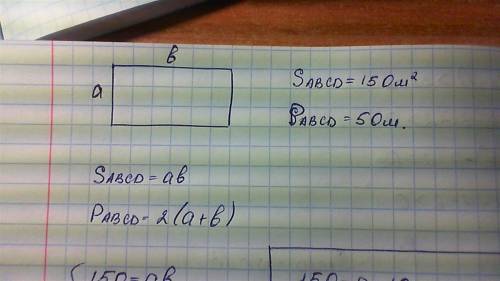 в
a
S ABCD = 150 м²
P ABCD = 50 м.
S ABCD = aв
P ABCD = 2(a+в)
{150=aв